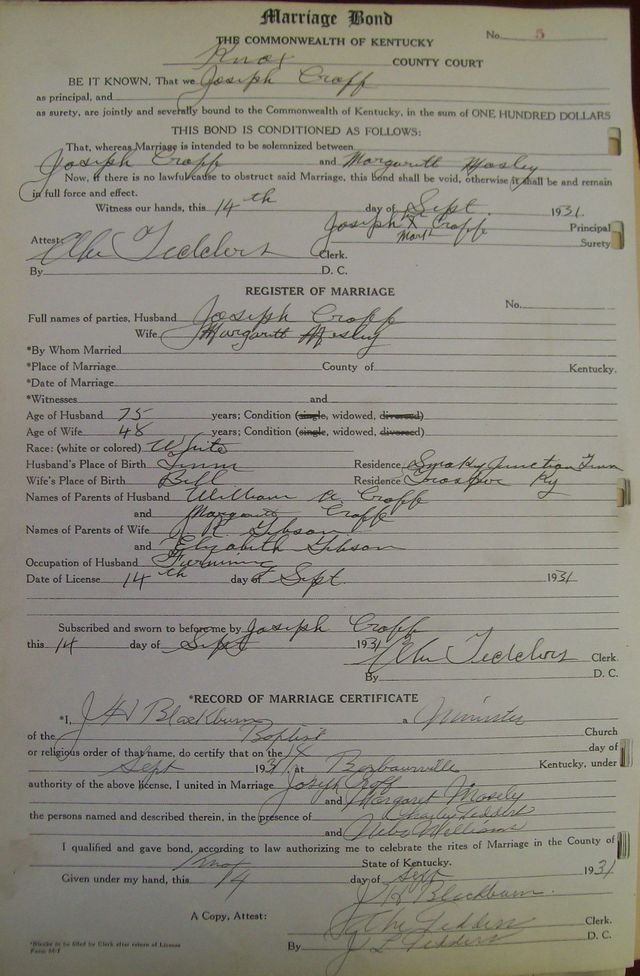 Marriage Bond
THE COMMONWEALTH OF KENTUCKY No. 5
Knox COUNTY COURT
BE IT KNOWN, That we Joseph Cropp
as principal, and
as surety, are jointly and severally bound to the Commonwealth of Kentucky, in the sum of ONE HUNDRED DOLLARS
THIS BOND IS CONDITIONED AS FOLLOWS:
That, whereas Marriage is intended to be solemnized between
Joseph Cropp and Margarett Mosley
Now, if there is no lawful cause to obstruct said Marriage, this bond shall be void, otherwise it shall be and remain
in full force and effect.
Witness our hands, this 14th day of Sept. 1931.
Joseph his X Mark Cropp Principal
Surety
Attest: Tedders Clerk.
By D. C.
REGISTER OF MARRIAGE
No.
Full names of parties, Husband Joseph Cropp
Wife Margarett Mosley
*By Whom Married
*Place of Marriage County of Kentucky.
*Date of Marriage
*Witnesses and
Age of Husband 75 years; Condition (single, widowed, divorced)
Age of Wife 48 years; Condition (single, widowed, divorced)
Race: (white or colored) White
Husband's Place of Birth Tenn Residence Smoky Junction Tenn
Wife's Place of Birth Bell Residence Trosper Ky
Names of Parents of Husband William Cropp
and Margarett Cropp
Names of Parents of Wife Gibson
and Elizabeth Gibson
Occupation of Husband Farming
Date of License 14th day of Sept. 1931
Subscribed and sworn to before me by Joseph Cropp
this 14 day of Sept 1931
Tedders Clerk.
By D. C.
*RECORD OF MARRIAGE CERTIFICATE
*I, J H Blackburn a Minister
of the Baptist Church
or religious order of that name, do certify that on the 14 day of
Sept 1931, at Barbourville Kentucky, under
authority of the above license, I united in Marriage Joseph Croff
and Margaret Mosely
the persons named and described therein, in the presence of Charley Tedders
and Williams
I qualified and gave bond, according to law authorizing me to celebrate the rites of Marriage in the County of
Knox State of Kentucky.
Given under my hand, this 14 day of Sept 1931
J H Blackburn.
A Copy, Attest: Tedders Clerk.
By J L Tedders D. C.
*Blanks to be filled by Clerk after return of License